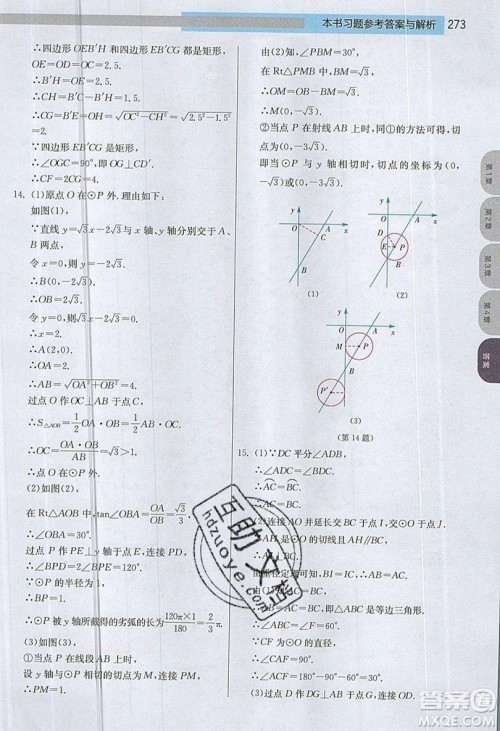 本书习题参考答案与解析 273
∴四边形 OEB'H 和四边形 EB'CG 都是矩形,
OE=OD=OC=2.5.
∴四边形 EB'CG 是矩形,
∴CH=B'C-B'H=
∴CG=B'E=OH=√OC²-CH²=√2.5²-1.5²
=2.
∵四边形 EB'CG 是矩形,
∴∠OGC=90°,即 OG⊥CD'.
∴CF=2CG=4.
14. (1)原点 O 在⊙P 外. 理由如下:
如图(1),
∵直线 y=√3x-2√3 与 x 轴、y 轴分别交于 A、
B 两点,
令 x=0,则 y=-2√3.
∴OB=2√3.
令 y=0,则√3x-2√3=0.
∴x=2.
∴A(2,0).
∴OA=2.
∴AB=√OA²+OB²=4.
过点 O 作 OC⊥AB 于点 C,
∵S△AOB=1/2OA·OB=1/2AB·OC,
∴OC=OA·OB/AB=√3>1.
∴原点 O 在⊙P 外.
(2)如图(2),
在 Rt△OAB 中,tan∠OBA=OA/OB=√3/3,
∴∠OBA=30°.
∵PB=PD,
∴∠BPD=120°.
∵⊙P 的半径为 1,
∴BP=1.
∴⊙P 被 y 轴所截得的劣弧的长为120π×1/180=2/3π.
(3)如图(3),
①当点 P 在线段 AB 上时,
设 y 轴与⊙P 的切点为 M,连接 PM,
∴PM=1.
由(2)知,∠PBM=30°,
∵在 Rt△PMB 中,
∴BM=√3.
∴OM=OB-BM=√3.
∴M(0,-√3).
②当点 P 在射线 AB 上时,同①的方法可得,
切点的坐标为(0,-3√3).
即当⊙P 与 y 轴相切时,切点的坐标为
(0,-√3)或(0,-3√3).
y O A x C B (1)
y O A x D E P B (2)
y O A x M P B P' (3)
(第 14 题)
15. (1)∵DC 平分∠ADB,
∴∠ADC=∠BDC.
∴AC=BC.
∴AC=BC.
(2)连接 AO 并延长交 BC 于点 I,交⊙O 于点 J,
∵AH 是⊙O 的切线且 AH∥BC,
∴AI⊥BC.
由垂径定理可得,
∵AC=BC,
∴△ABC 是等边三角形.
∴∠ABC=∠F=60°.
∵CF 为⊙O 的直径,
∴∠CAF=90°.
∴∠ACF=180°-90°-60°=30°.
(3)过点 D 作 DG⊥AB 于点
第1章
第2章
第3章
第4章
答案
互助文档
hdzuoye.com
答案圈
MXQE.COM